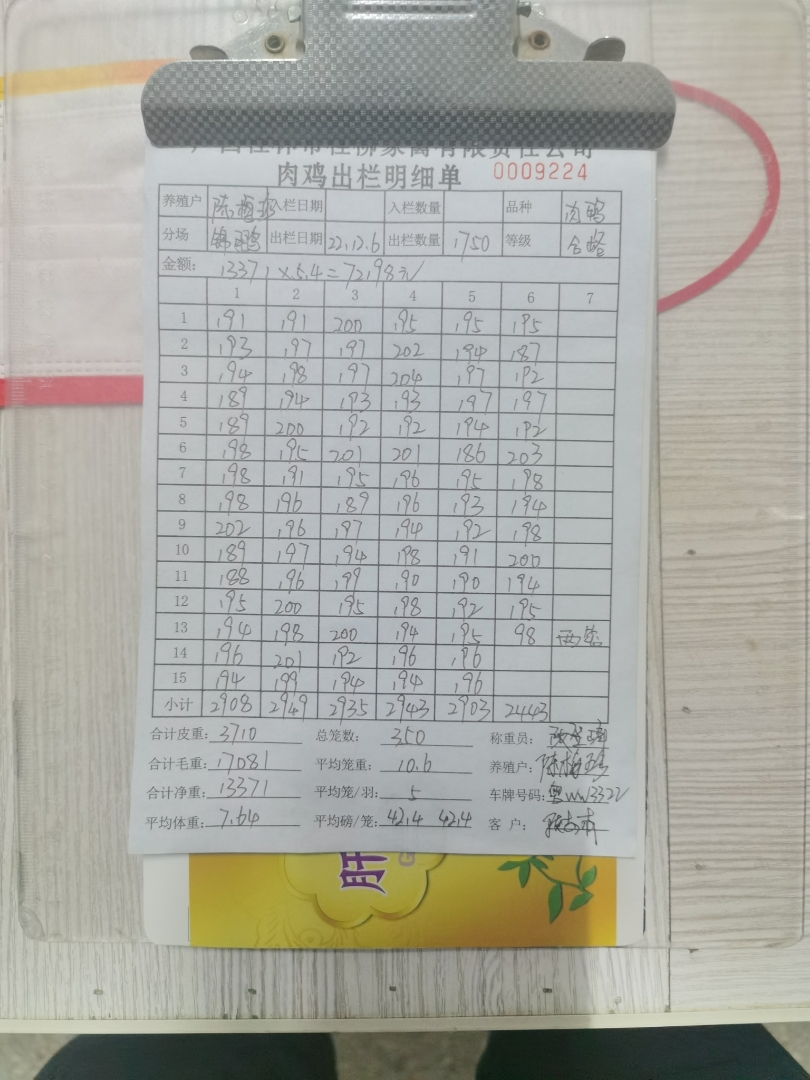 肉鸡出栏明细单 0009224
养殖户 陈梅珍 入栏日期 入栏数量 品种 肉鸭
分场 锦鹏 出栏日期 22.12.6 出栏数量 1750 等级 合格
金额: 13371×5.4=72198元
1 2 3 4 5 6 7
1 191 191 200 195 195 195
2 193 197 197 202 194 187
3 194 198 197 204 197 192
4 189 194 193 193 197 197
5 189 200 192 192 194 192
6 198 195 201 201 186 203
7 198 191 195 196 195 198
8 198 196 189 196 193 194
9 202 196 197 194 192 198
10 189 197 194 198 191 200
11 188 196 199 190 190 194
12 195 200 195 198 92 195
13 194 198 200 194 195 98 两笼
14 196 201 192 196 196
15 194 199 194 194 196
小计 2908 2949 2935 2943 2903 2443
合计皮重: 3710 总笼数: 350 称重员:
合计毛重: 17081 平均笼重: 10.6 养殖户: 陈梅珍
合计净重: 13371 平均笼/羽: 5 车牌号码: 粤W13322
平均体重: 7.64 平均磅/笼: 42.4 42.4 客户: